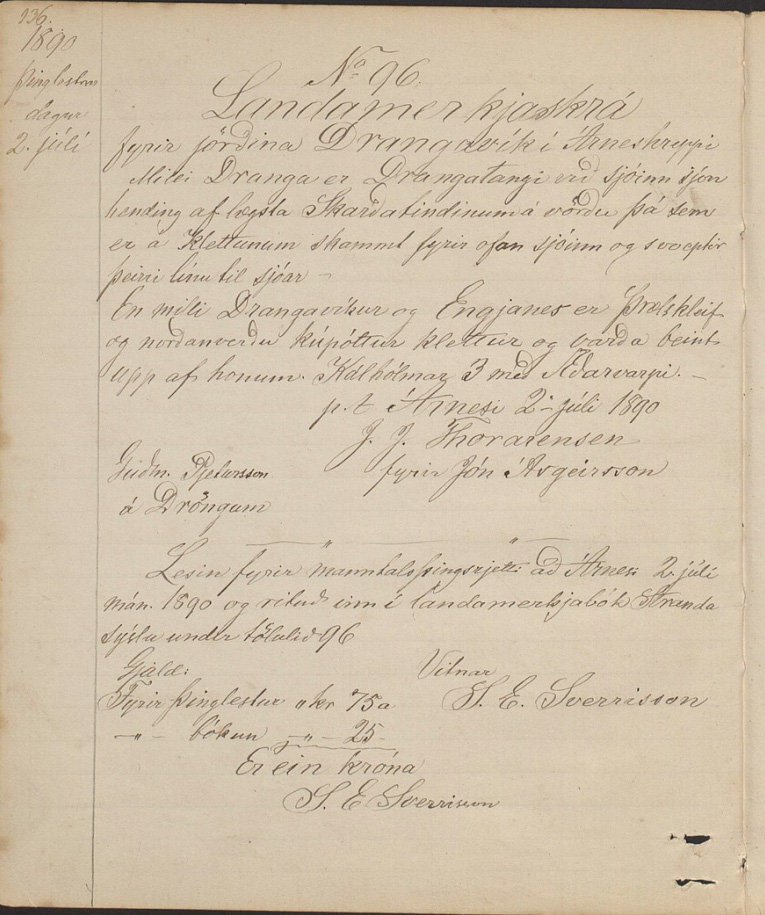 236.
1890
Þinglesturs
dagur
2. júlí
No 96.
Landamerkjaskrá
fyrir jörðina Drangavík í Árneshreppi
Milli Dranga er Drangatangi við sjóinn sjón
hending af lægsta Skarðatindinum á vörðu þá sem
er á Klettunum skammt fyrir ofan sjóinn og svo eptir
þeirri línu til sjóar –
En milli Drangavíkur og Engjanes er Þrælskleif
og norðanverðu kúpóttur klettur og varða beint
upp af honum. Kálhólmar 3 með Æðarvarpi. –
p.t Árnesi 2. júlí 1890
J. J. Thorarensen
fyrir Jón Ásgeirsson
Guðm. Pjetursson
á Dröngum
Lesin fyrir manntalsþingsrjetti að Árnesi 2. júlí
mán. 1890 og rituð inn í landamerkjabók Stranda
sýslu undir tölulið 96
Gjald:
Fyrir þinglestur „ kr 75 a
–„– bókun –„– 25 –
Er ein króna
S. E Sverrisson
Vitnar
S. E. Sverrisson